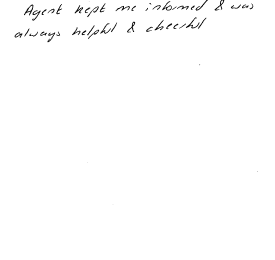 Agent kept me informed & was
always helpful & cheerful